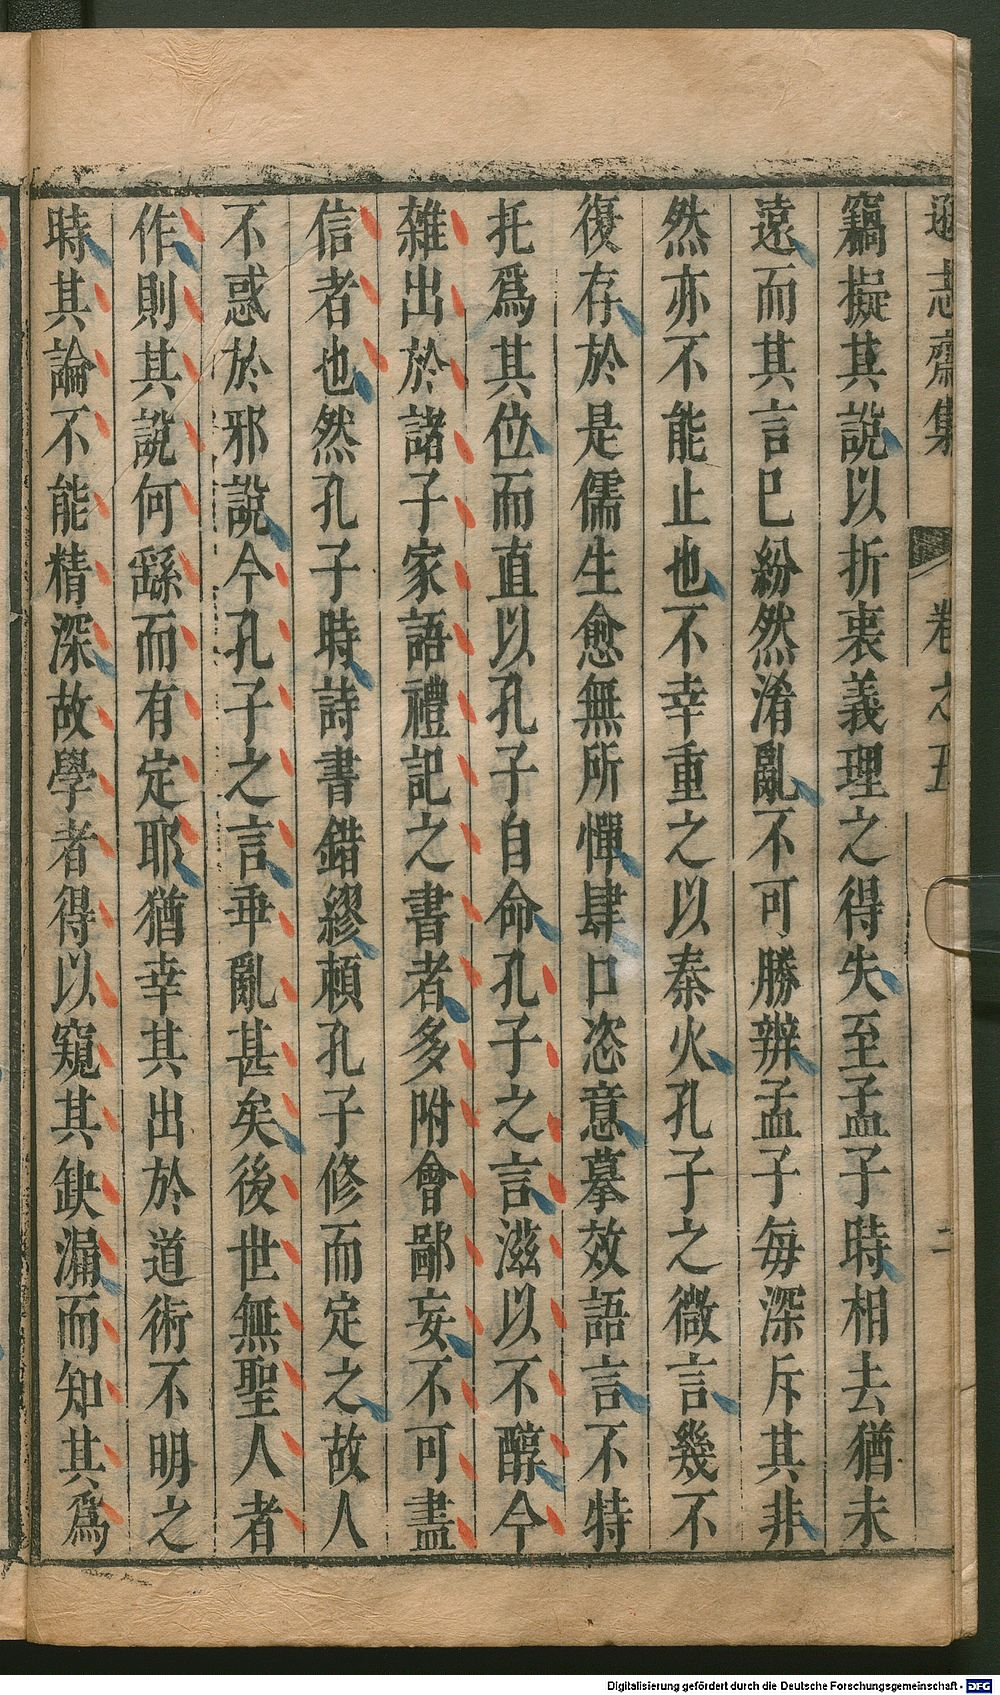 遜志齋集 卷之五 二
竊擬其說以折衷義理之得失至孟子時相去猶未
遠而其言已紛然淆亂不可勝辨孟子毎深斥其非
然亦不能止也不幸重之以秦火孔子之微言幾不
復存於是儒生愈無所憚肆口恣意摹效語言不特
托爲其位而直以孔子自命孔子之言滋以不醇今
雜出於諸子家語禮記之書者多附會鄙妄不可盡
信者也然孔子時詩書錯繆頼孔子修而定之故人
不惑於邪說今孔子之言乖亂甚矣後世無聖人者
作則其說何繇而有定耶猶幸其出於道術不明之
時其論不能精深故學者得以窺其缺漏而知其爲
Digitalisierung gefördert durch die Deutsche Forschungsgemeinschaft - DFG